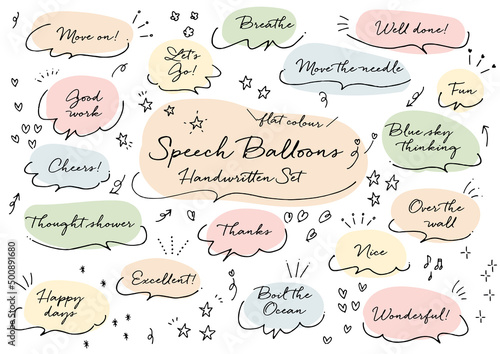 Move on!
Let's
Go!
Breathe
Move the needle
Well done!
Fun
Good
work
flat colour
Speech Balloons
Handwritten Set
Blue sky
thinking
Cheers!
Thought shower
Thanks
Over the
wall
Nice
Excellent!
Happy
days
Boil the
Ocean
Wonderful!
Adobe Stock
#500891680